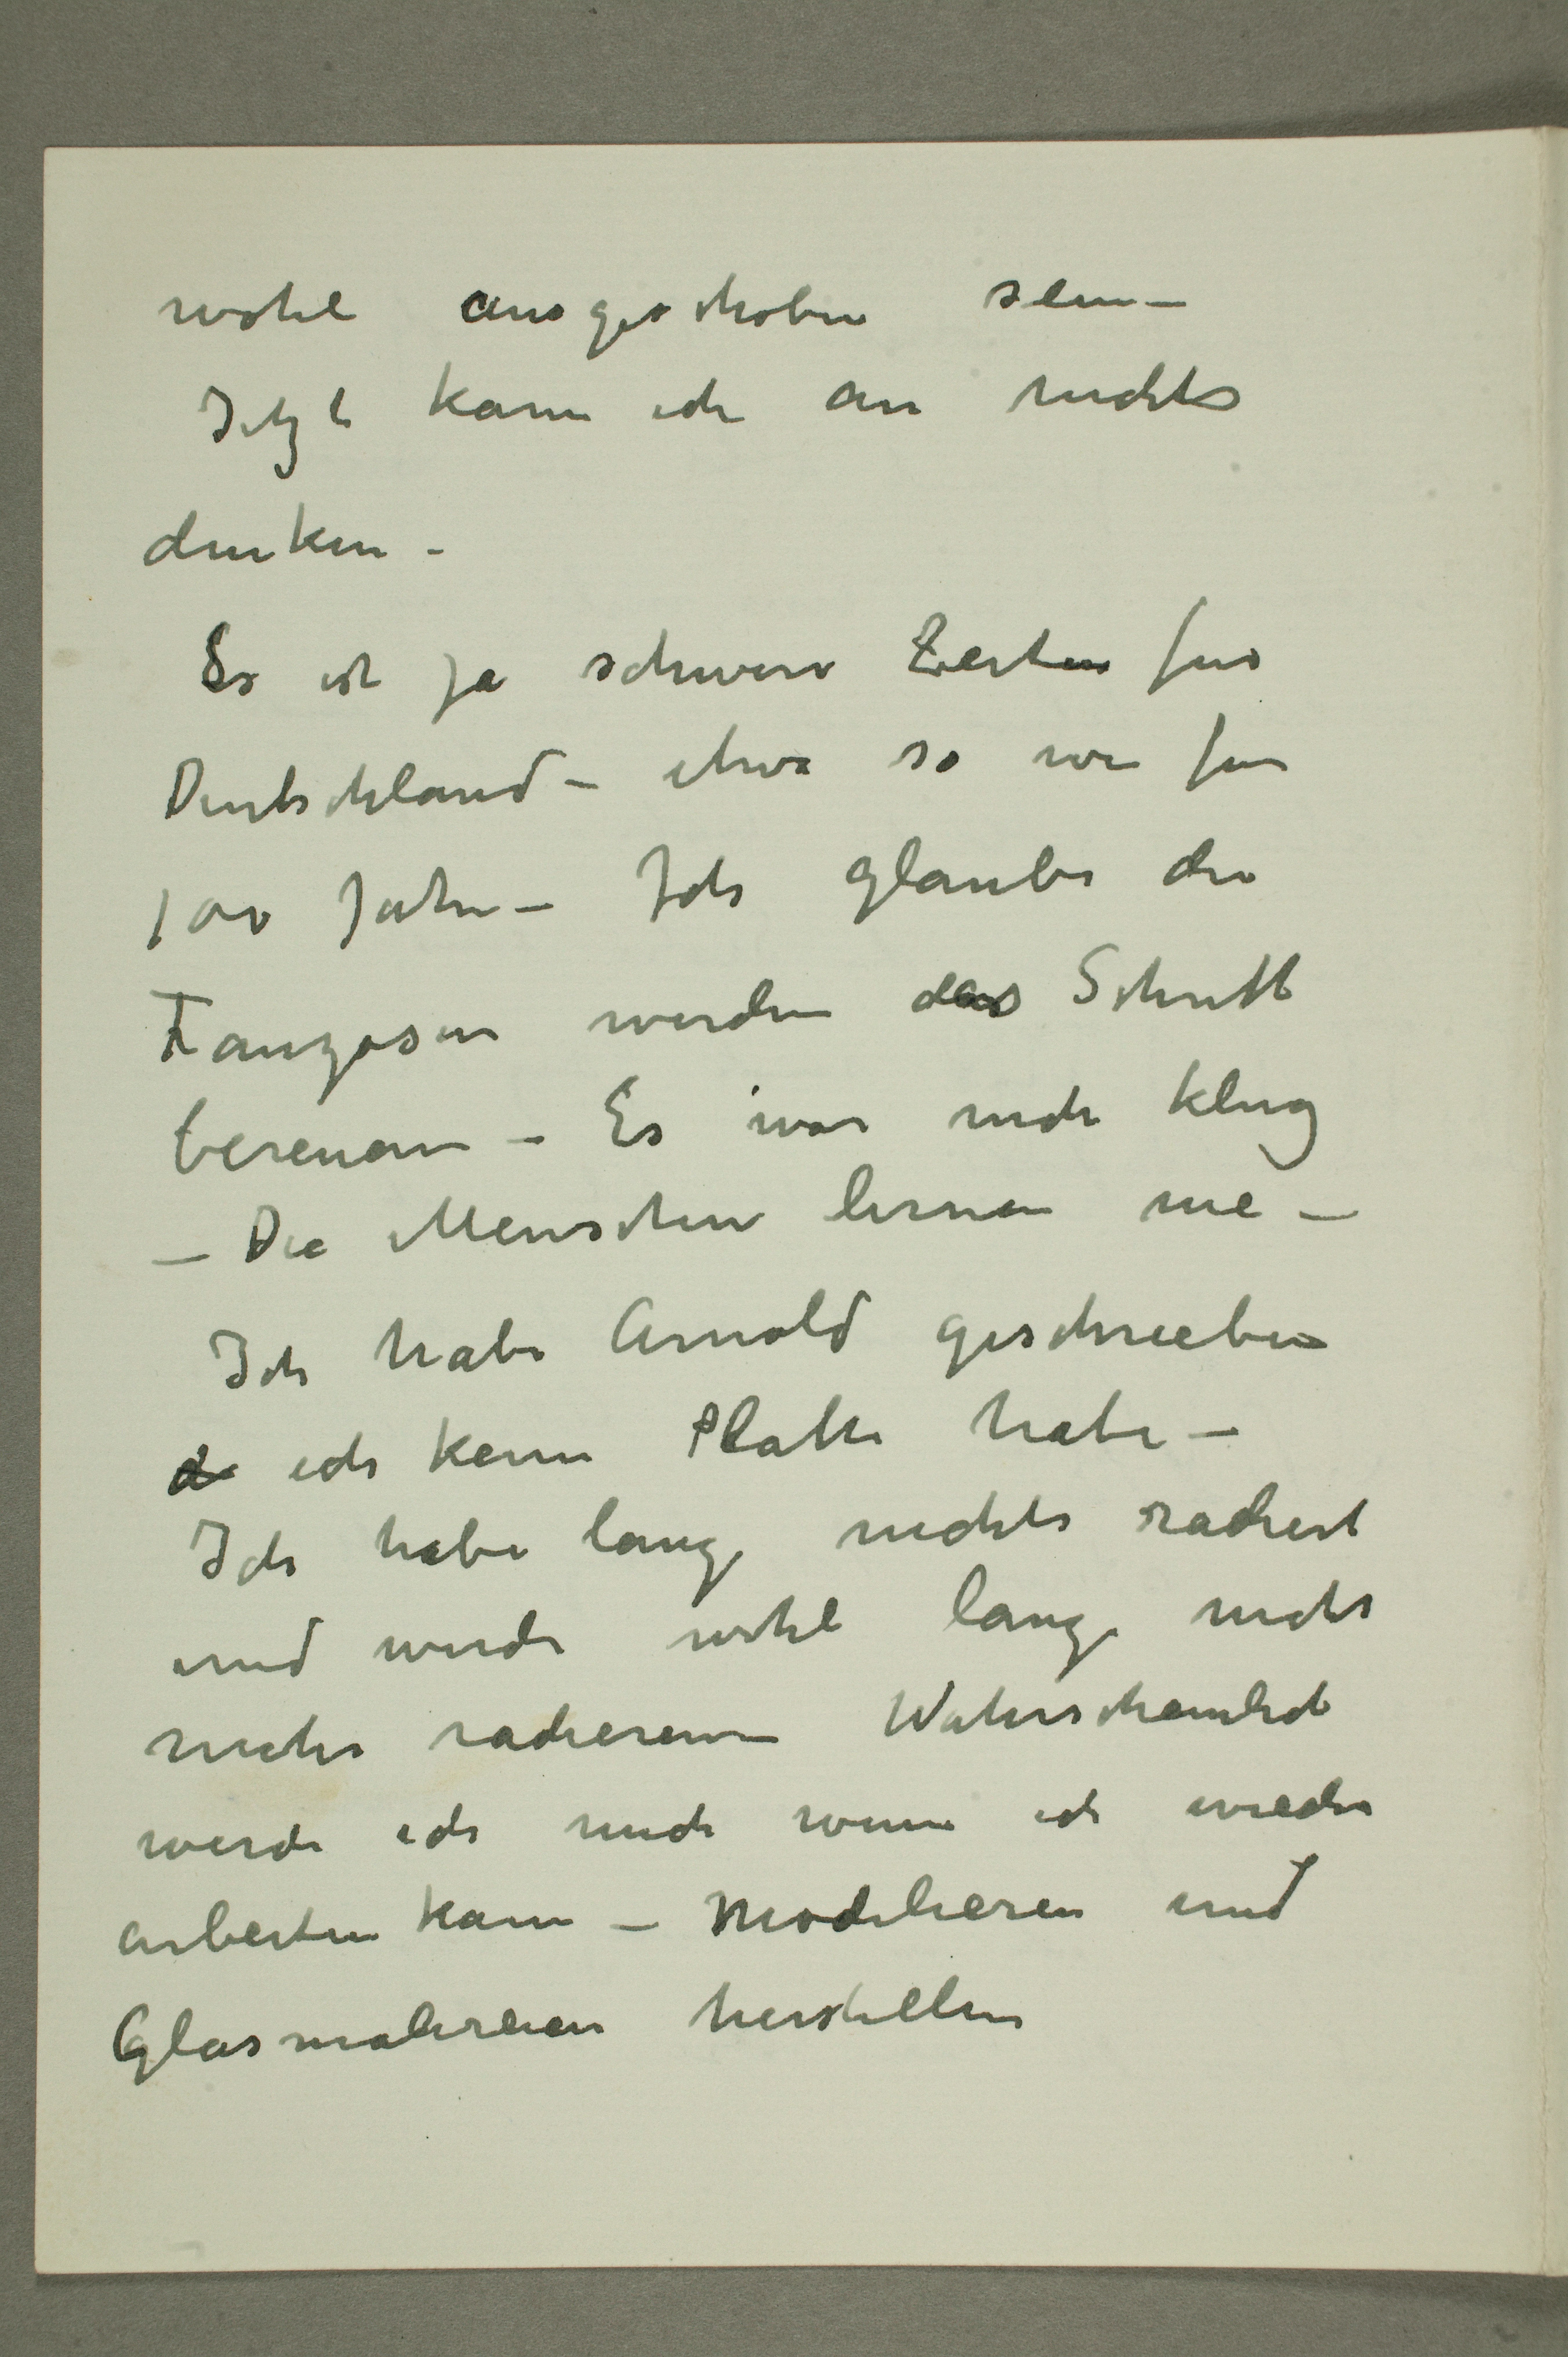 wohl ausgeschoben sein –
Jetzt kann ich an nichts
denken –
Es ist ja schwere Zeiten für
Deutschland – etwa so wie fur
100 Jahre – Ich glaube die
Franzosen werden das Schritt
bereuen – Es war nicht klug
– Die Menschen lernen nie –
Ich habe Arnold geschrieben
ich keine Platte habe –
Ich habe lange nichts radiert
und werde wohl lange nicht
mehr radieren Wahrscheinlich
werde ich mich wenn ich wieder
arbeiten kann – Modelieren und
Glasmalereien herstellen